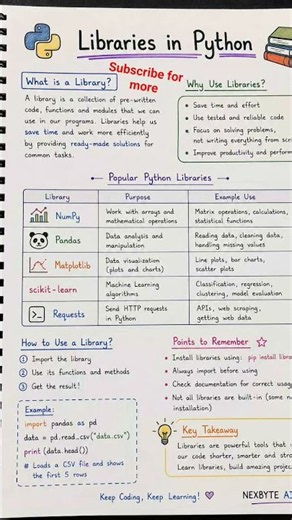 Libraries in Python
Subscribe for
more
What is a Library?
A library is a collection of pre-written
code, functions and modules that we can
use in our programs. Libraries help us
save time and work more efficiently
by providing ready-made solutions for
common tasks.
Why Use Libraries?
• Save time and effort
• Use tested and reliable code
• Focus on solving problems,
not writing everything from scr
• Improve productivity and perform
Popular Python Libraries
Library Purpose Example Use
NumPy Work with arrays and mathematical operations Matrix operations, calculations, statistical functions
Pandas Data analysis and manipulation Reading data, cleaning data, handling missing values
Matplotlib Data visualization (plots and charts) Line plots, bar charts, scatter plots
scikit-learn Machine Learning algorithms Classification, regression, clustering, model evaluation
Requests Send HTTP requests in Python APIs, web scraping, getting web data
How to Use a Library?
1 Import the library
2 Use its functions and methods
3 Get the result!
Example:
import pandas as pd
data = pd.read_csv("data.csv")
print (data.head())
# Loads a CSV file and shows
the first 5 rows
Points to Remember
• Install libraries using: pip install librar
• Always import before using
• Check documentation for correct usag
• Not all libraries are built-in (some n
installation)
Key Takeaway
Libraries are powerful tools that
our code shorter, smarter and stro
Learn libraries, build amazing projec
Keep Coding, Keep Learning!
NEXBYTE AI